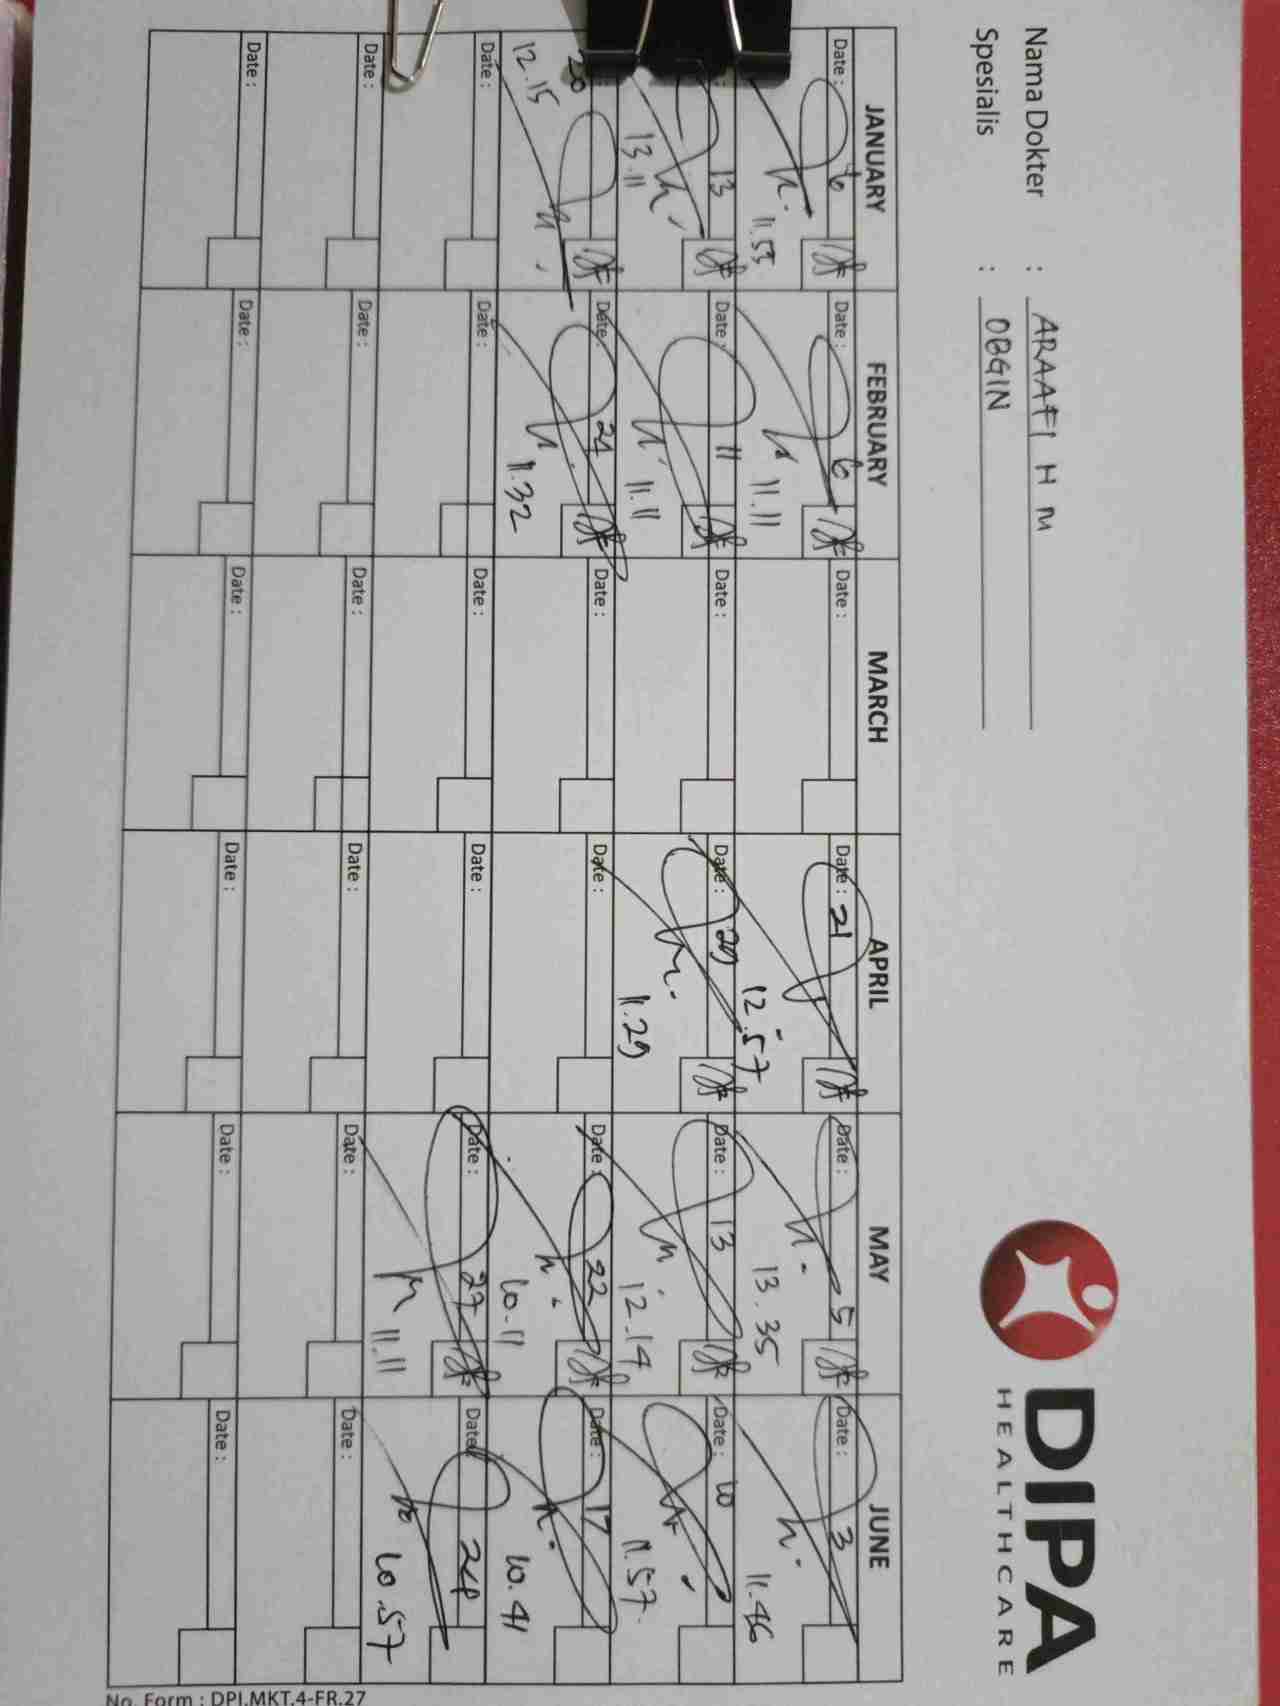 Nama Dokter : ARAAFI H M
Spesialis : OBGIN
DIPA
HEALTHCARE
JANUARY FEBRUARY MARCH APRIL MAY JUNE
Date : 6 Date : 6 Date : Date : 21 Date : 5 Date : 3
11.53 11.11 12.57 13.35 11.46
13 Date : 11 Date : Date : 29 Date : 13 Date : 10
13.11 11.11 11.29 12.14 11.57
20 Date : 24 Date : Date : Date : 22 Date : 17
12.15 11.32 10.11 10.41
Date : Date : Date : Date : Date : 27 Date : 24
11.11 10.57
Date : Date : Date : Date : Date : Date :
Date : Date : Date : Date : Date : Date :
No. Form : DPI.MKT.4-FR.27